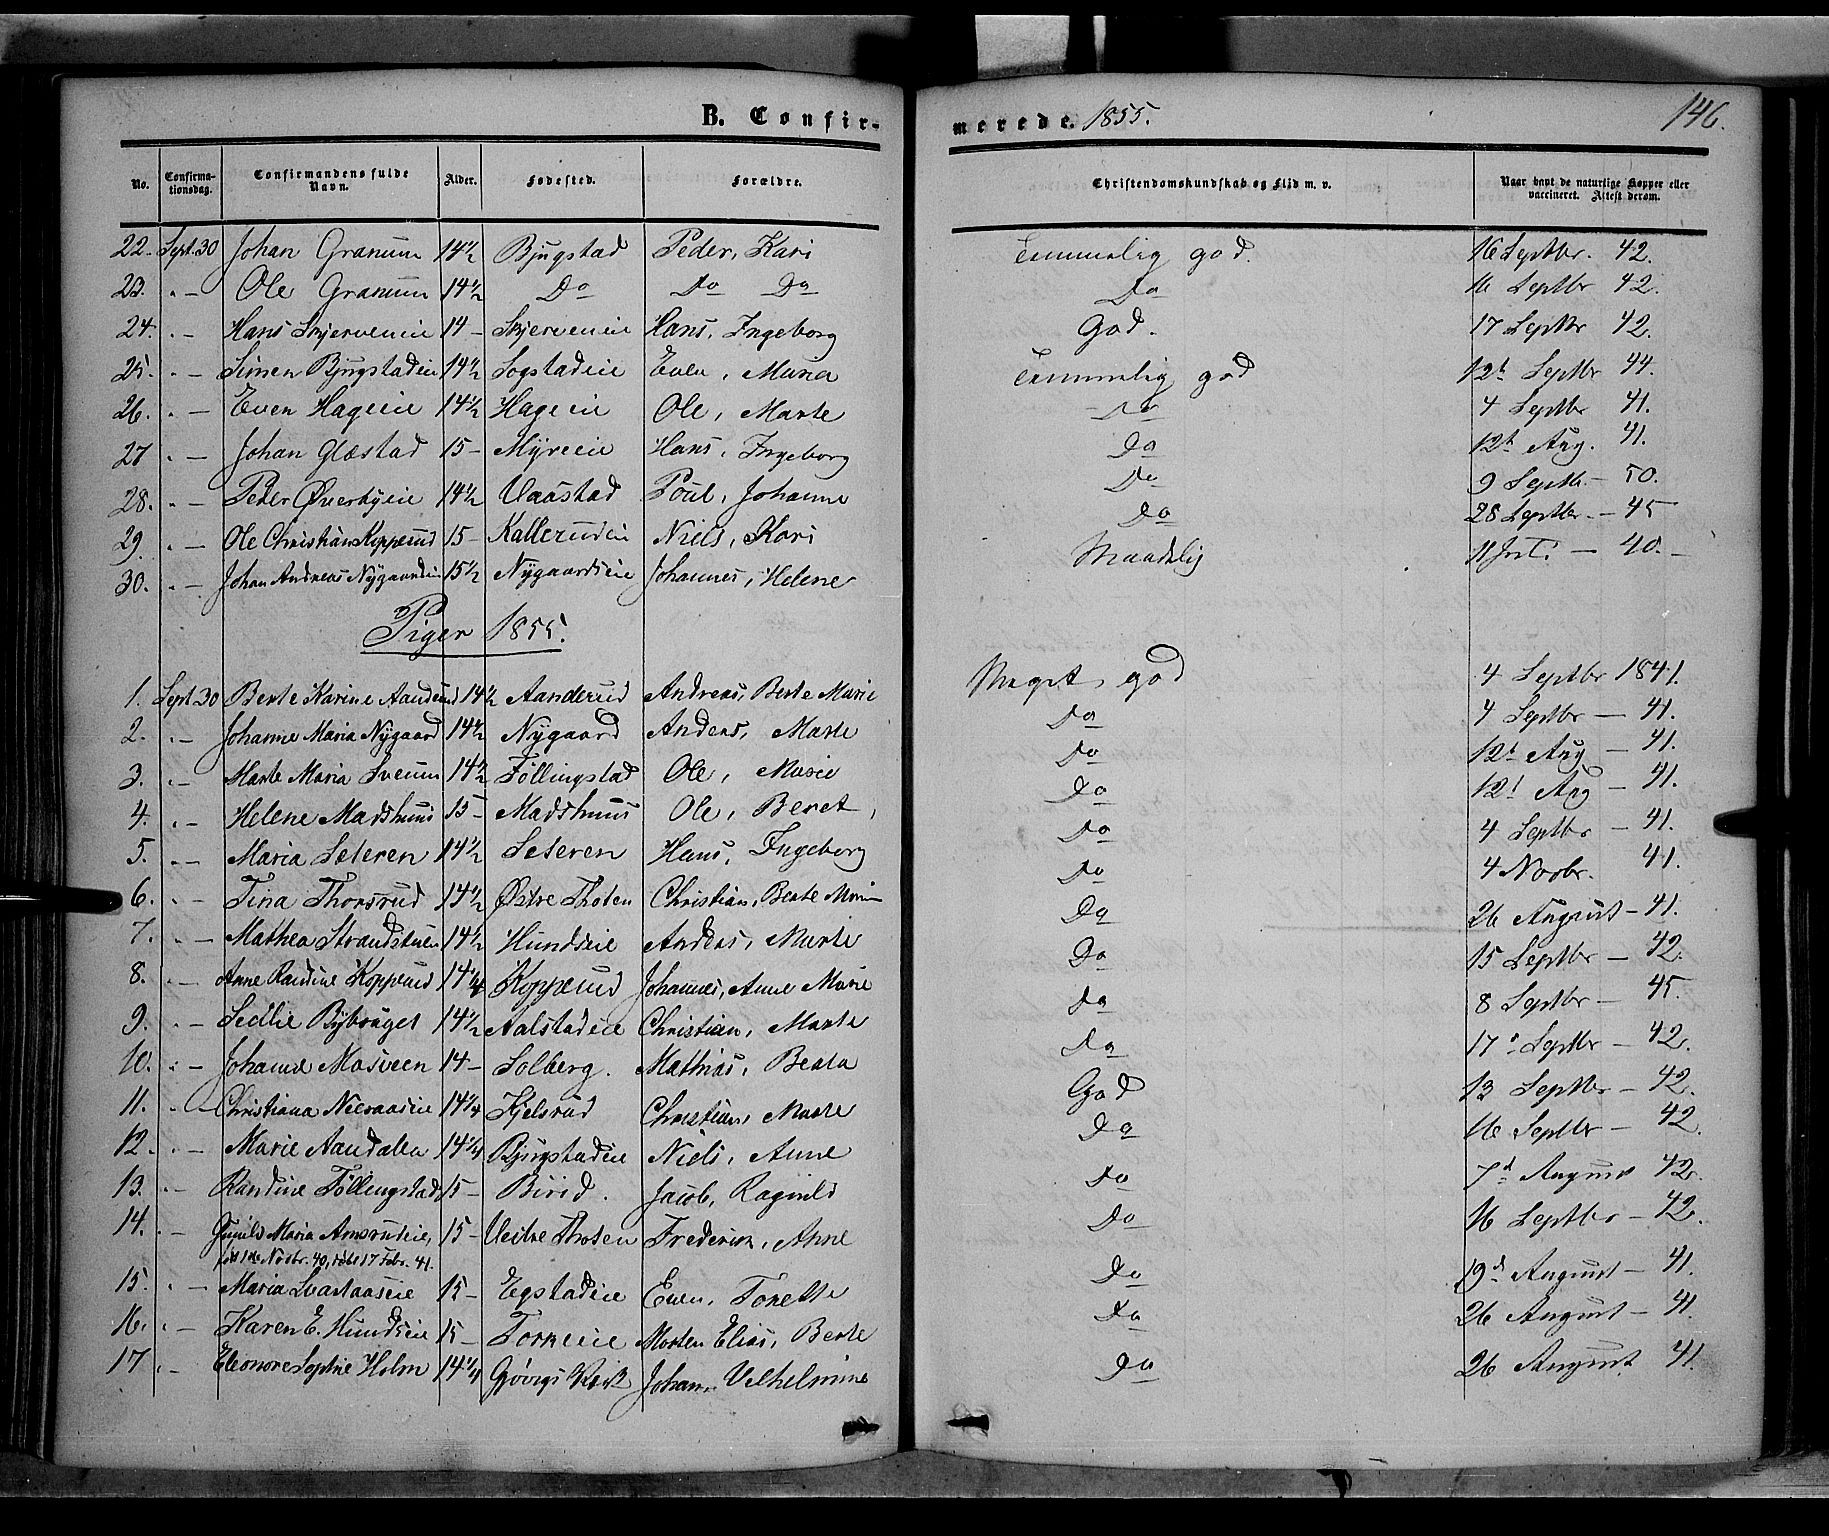 B. Confirmerede. 1855. 146.
No. Confirmationsdag. Confirmandens fulde Navn. Alder. Fødested. Forældre. Christendomskundskab og Flid m. v. Naar havt de naturlige Kopper eller vaccineret. Attest derom.
22. Sept. 30 Johan Granum 14½ Bjugstad Peder, Kari Temmelig god. 16 Septbr. 42.
23. " — Ole Granum 14½ Do Do Do Do 16 Septbr 42.
24. " — Hans Skjerveneie 14 — Skjerveneie Hans, Ingeborg God. 17 Septbr 42.
25. " — Simen Bjugstadeie 14½ Sogstadeie Even, Maria Temmelig god 12te Septbr 44.
26. " — Even Hageeie 14½ Hageeie Ole, Marte Do 4 Septbr 41.
27 " — Johan Glæstad 15 — Myreeie Hans, Ingeborg Do 12te Aug. 41.
28. " — Peder Øverbyeie 14½ Vaastad Poul, Johanne Do 9 Septb. — 50.
29. " — Ole Christian Kopperud 15 — Kallerudeie Niels, Kari Do 28 Septbr. — 45
30. " — Johan Andreas Nygaardeie 15½ Nygaardseie Johannes, Helene Maadelig 11 — 40. —
Piger 1855.
1. Sept. 30 Berte Karine Aanderud 14½ Aanderud Andreas, Berte Marie Meget god 4 Septbr 1841.
2. " — Johanne Maria Nygaard 14½ Nygaard Anders, Marte Do 4 Septbr — 41.
3. " — Marte Maria Sveum 14½ Føllingstad Ole, Marie Do 12te Aug — 41.
4. " — Helene Madshuus 15 — Madshuus Ole, Beret, Do 12t Aug — 41.
5. " — Maria Seteren 14½ Seteren Hans, Ingeborg Do 4 Septbr — 41.
6. " — Tina Thorsrud 14½ Østre Thoten Christian, Berte Marie Do 4 Novbr. 41.
7. " — Mathea Strandstuen 14½ Hundseie Anders, Marte Do 26 August — 41.
8. " — Anne Randine Kopperud 14¼ Kopperud Johannes, Anne Marie Do 15 Septbr — 42.
9. " — Secilie Bybraaget 14½ Aalstadeie Christian, Marte Do 8 Septbr — 45.
10. " — Johanne Mosveen 14 — Solberg. Mathias, Beata Do 17 Septbr — 42.
11. " — Christiana 14¼ Kjelsrud Christian, Marte God 13 Septbr — 42.
12. " — Marie Aandalen 14¼ Bjugstadeie Niels, Anne Do 16 Septbr — 42.
13. " — Randine Føllingstad 15 — Birid. Jacob, Ragnild Do 7d August 42.
14. " — Gunild Maria Amsrudeie, 15 — Vestre Thoten Frederik, Anne Do 16 Septbr — 42.
født 1de Novbr. 40, døbt 17 Febr. 41.
15. " — Maria Svastaaseie 15 — Egstadeie Even, Tonette Do 19d August — 41.
16. " — Karen E. Hundseie 15 — Torkeeie Morten Elias, Berte Do 26 August — 41.
17 " — Eleonore Sophie Holm 14¼ Gjøvigs Johan Vilhelmine Do 26 August 41.